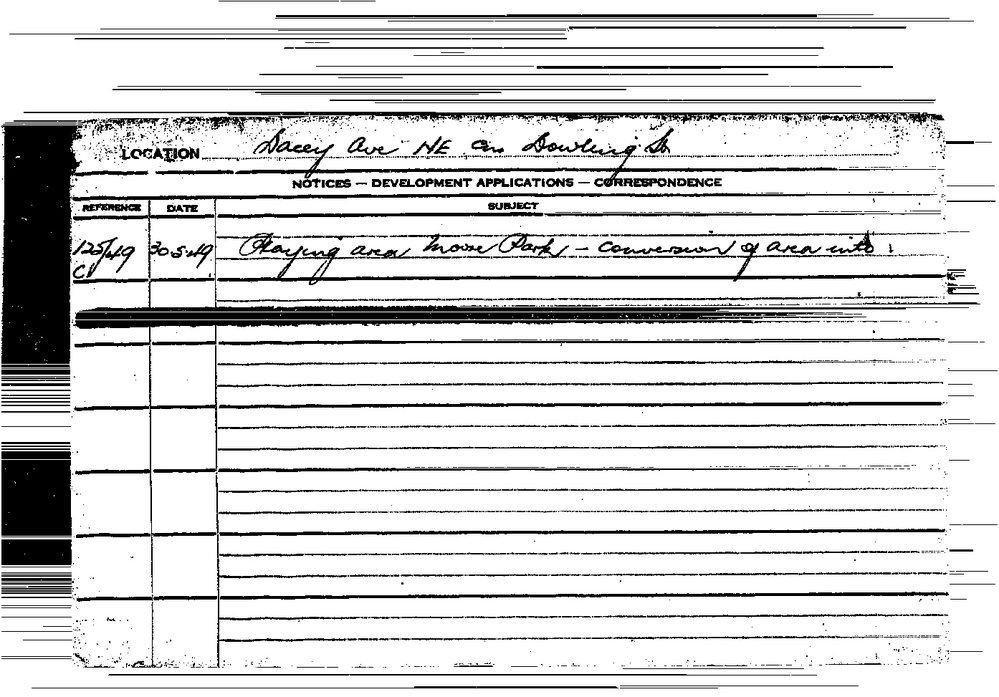 LOCATION Dacey Ave NE Cnr Dowling St
NOTICES — DEVELOPMENT APPLICATIONS — CORRESPONDENCE
REFERENCE DATE SUBJECT
125/49 30.5.49 Playing area Moore Park – conversion of area into
C